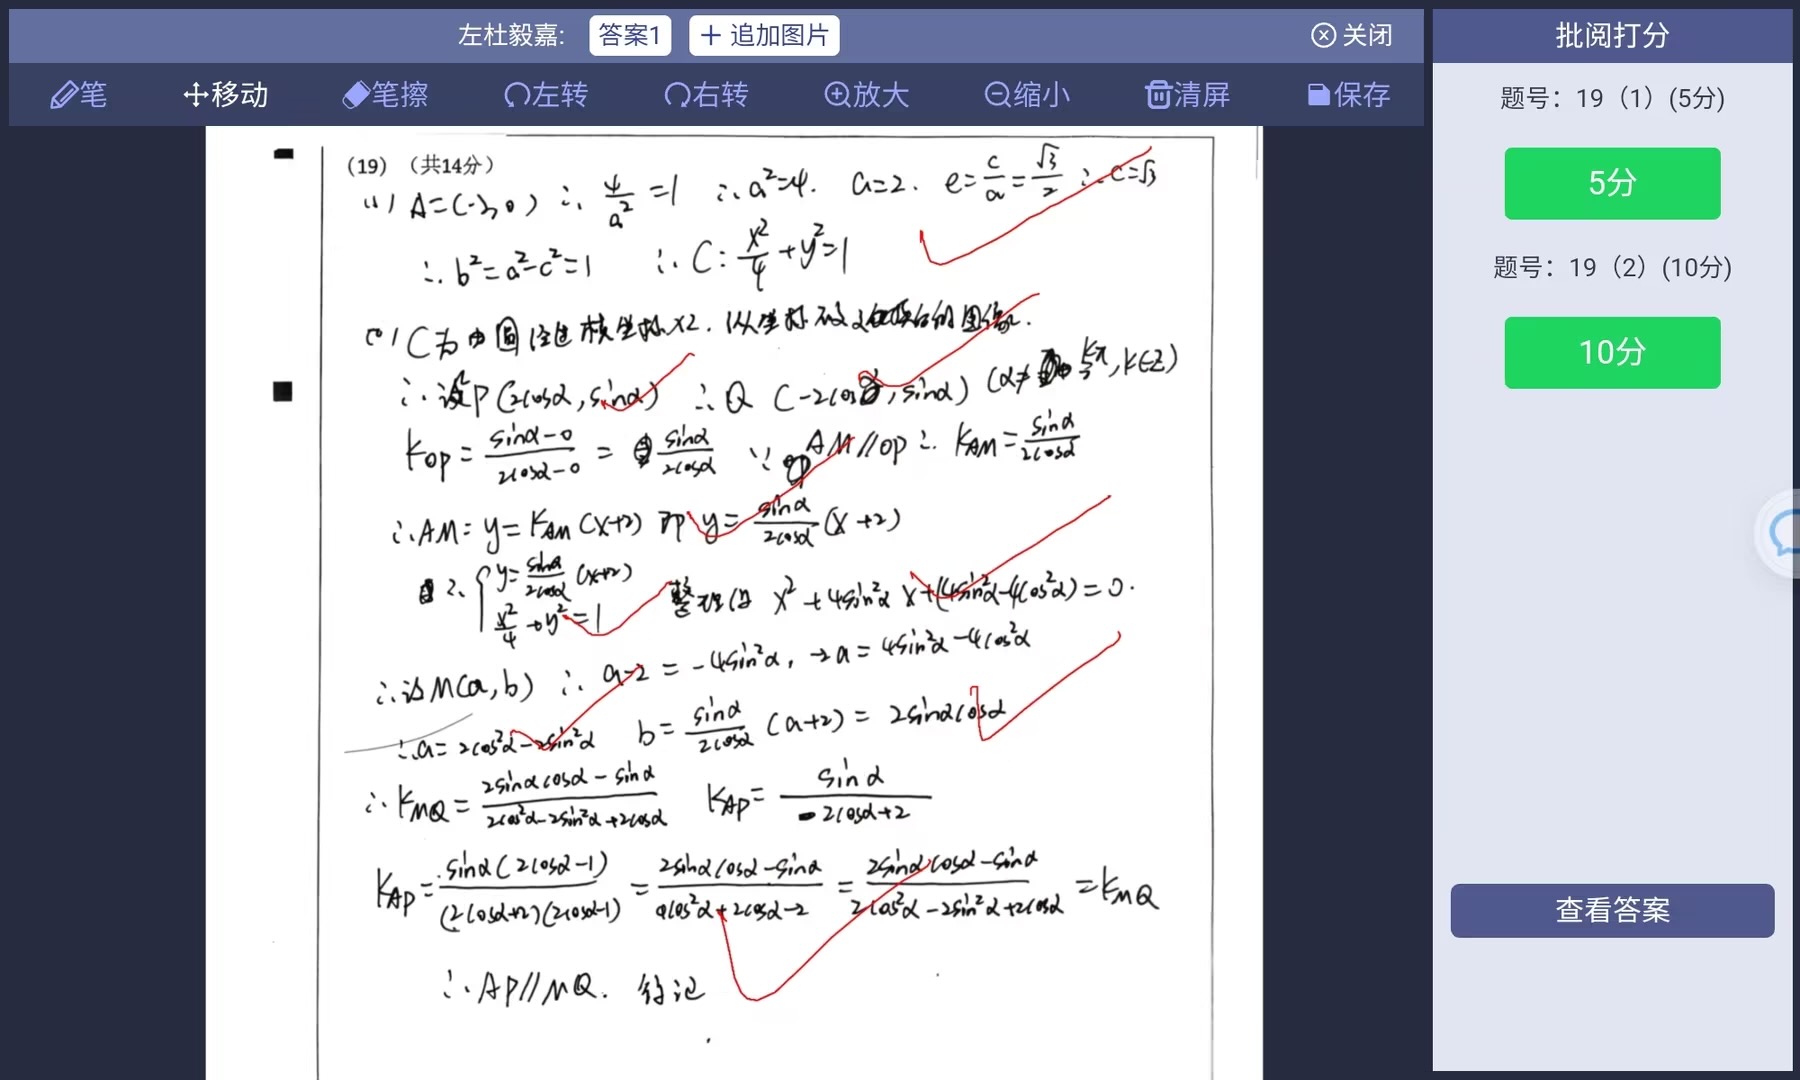 左杜毅嘉: 答案1 + 追加图片 关闭
批阅打分
笔 移动 笔擦 左转 右转 放大 缩小 清屏 保存
题号：19（1）(5分)
5分
题号：19（2）(10分)
10分
查看答案
(19) (共14分)
(1) A=(-2,0) ∴ 4/a²=1 ∴a²=4. a=2. e=c/a=√3/2 ∴c=√3
∴b²=a²-c²=1 ∴C: x²/4+y²=1
(2) C为由圆经过横坐标×2. 纵坐标不变
∴设P(2cosα,sinα) ∴Q(-2cosα,sinα) (α≠kπ/2,k∈Z)
KOP=(sinα-0)/(2cosα-0)=sinα/2cosα ∵AM//OP∴KAM=sinα/2cosα
∴AM: y=KAM(x+2) 即y=sinα/2cosα(x+2)
∴{y=sinα/2cosα(x+2)
x²/4+y²=1 整理得 x²+4sin²αx+(4sin²α-4cos²α)=0.
∴设M(a,b) ∴a-2=-4sin²α, -2a=4sin²α-4cos²α
∴a=2cos²α-2sin²α b=sinα/2cosα(a+2)=2sinαcosα
∴KMQ=(2sinαcosα-sinα)/(2cos²α-2sin²α+2cosα) KAP=sinα/(2cosα+2)
KAP=sinα(2cosα-1)/(2cosα+2)(2cosα-1)=(2sinαcosα-sinα)/(4cos²α+2cosα-2)=(2sinαcosα-sinα)/(2cos²α-2sin²α+2cosα)=KMQ
∴AP//MQ. 得证